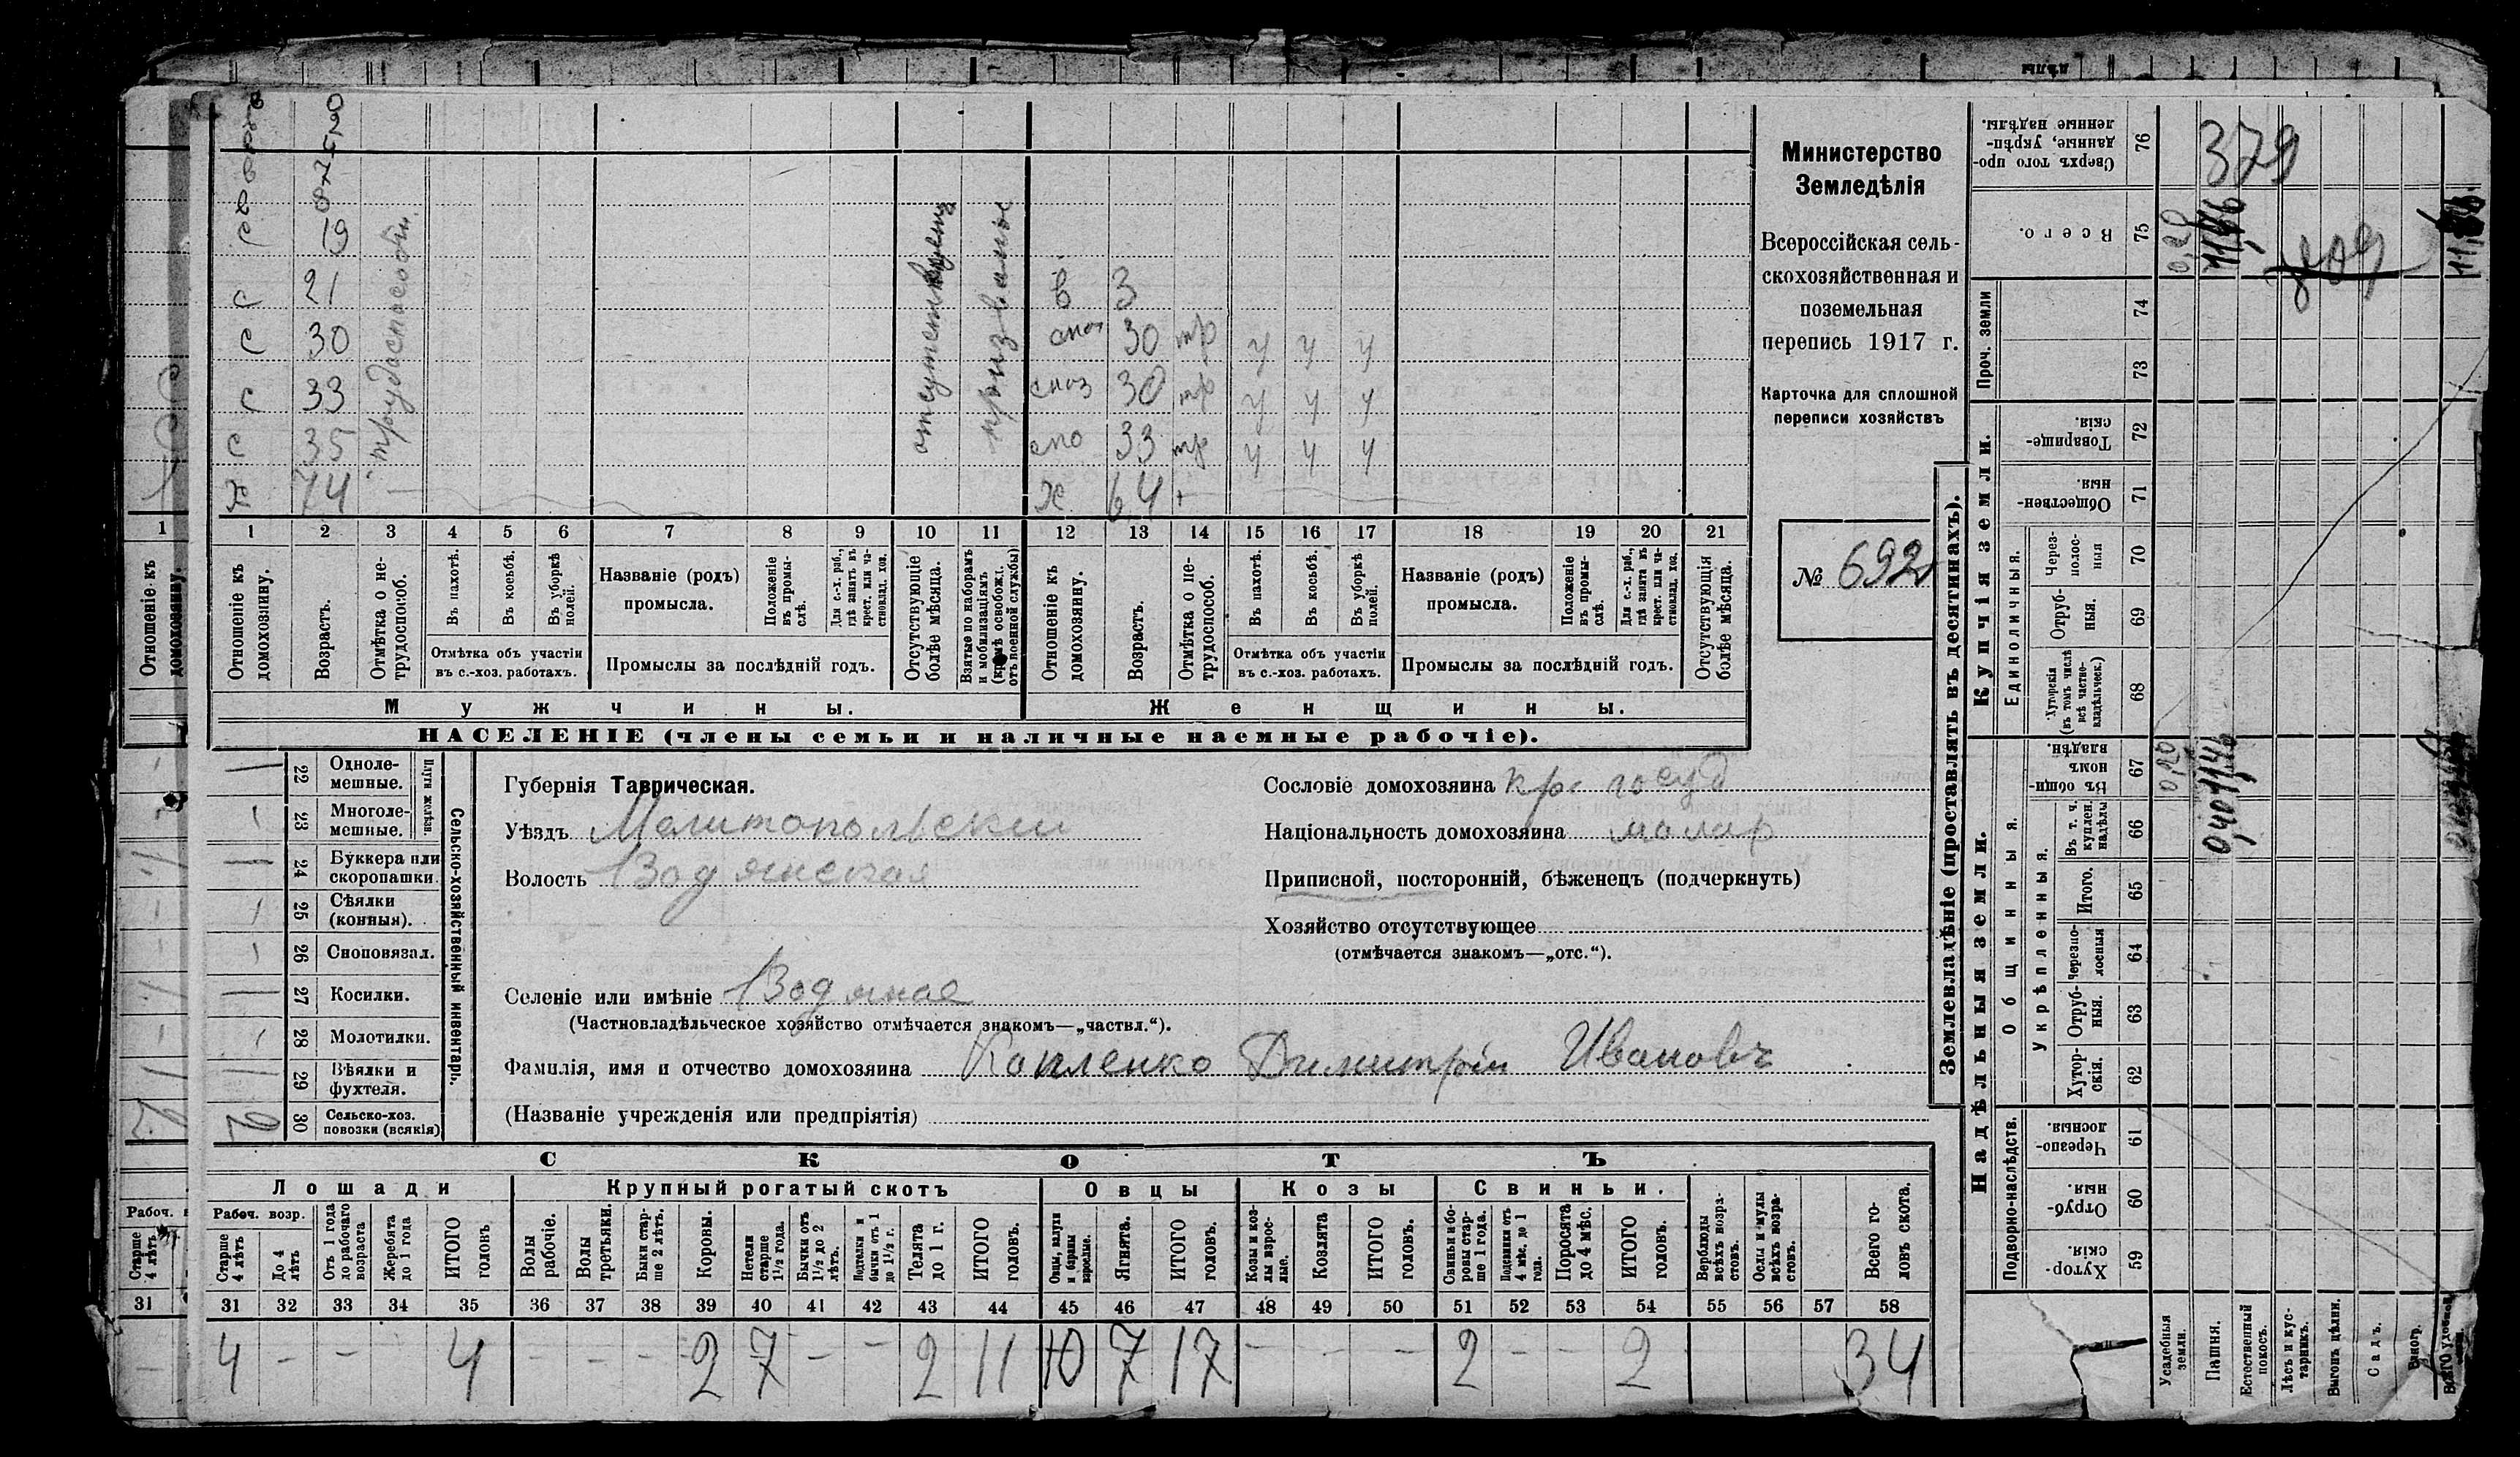 Министерство
Земледѣлія
Всероссійская сель-
скохозяйственная и
поземельная
перепись 1917 г.
Карточка для сплошной
переписи хозяйствъ
№ 692
с 19
с 21 в 3
с 30 30 тр у у у
с 33 30 тр у у у
с 35 33 тр у у у
х 74 — х 64 +
трудоспособн.
призваны
1 2 3 4 5 6 7 8 9 10 11 12 13 14 15 16 17 18 19 20 21
Отношеніе къ домохозяину.
Возрастъ.
Отмѣтка о не-трудоспособ.
Въ пахотѣ.
Въ косьбѣ.
Въ уборкѣ полей.
Отмѣтка объ участіи
въ с.-хоз. работахъ.
Названіе (родъ)
промысла.
Положеніе въ промы-слѣ.
Для с.-х. раб., гдѣ занятъ въ крест. или ча-стновлад. хоз.
Промыслы за послѣдній годъ.
Отсутствующіе болѣе мѣсяца.
Взятые по наборамъ и мобилизаціямъ (кромѣ освобожд. отъ военной службы)
Отношеніе къ домохозяину.
Возрастъ.
Отмѣтка о не-трудоспособ.
Въ пахотѣ.
Въ косьбѣ.
Въ уборкѣ полей.
Отмѣтка объ участіи
въ с.-хоз. работахъ.
Названіе (родъ)
промысла.
Положеніе въ промы-слѣ.
Для с.-х. раб., гдѣ занята въ крест. или ча-стновлад. хоз.
Промыслы за послѣдній годъ.
Отсутствующія болѣе мѣсяца.
Мужчины.
Женщины.
НАСЕЛЕНІЕ (члены семьи и наличные наемные рабочіе).
22 Одноле-мешные.
23 Многоле-мешные.
Плуги желѣзн.
24 Буккера или скоропашки.
25 Сѣялки (конныя).
26 Сноповязал.
27 Косилки.
28 Молотилки.
29 Вѣялки и фухтеля.
2 30 Сельско-хоз. повозки (всякія)
Сельско-хозяйственный инвентарь.
Губернія Таврическая.
Уѣздъ Мелитопольскій
Волость Водянская
Селеніе или имѣніе Водяное
(Частновладѣльческое хозяйство отмѣчается знакомъ—„частвл.“).
Фамилія, имя и отчество домохозяина Копленко Димитрій Ивановъ
(Названіе учрежденія или предпріятія)
Сословіе домохозяина кр. госуд
Національность домохозяина малор
Приписной, посторонній, бѣженецъ (подчеркнуть)
Хозяйство отсутствующее
(отмѣчается знакомъ—„отс.“).
СКОТЪ
Лошади
Крупный рогатый скотъ
Овцы
Козы
Свиньи.
Рабоч. возр.
Старше 4 лѣтъ
До 4 лѣтъ
Отъ 1 года до рабочаго возраста
Жеребята до 1 года
ИТОГО головъ
Волы рабочіе.
Волы третьяки.
Быки стар-ше 2 лѣтъ.
Коровы.
Нетели старше 1½ года.
Бычки отъ 1½ до 2 лѣтъ.
Подтелки и бычки отъ 1 до 1½ г.
Телята до 1 г.
ИТОГО головъ.
Овцы, валухи и бараны взрослые.
Ягнята.
ИТОГО головъ.
Козы и коз-лы взрос-лые.
Козлята
ИТОГО головъ.
Свиньи и бо-ровы стар-ше 1 года.
Подсвинки отъ 4 мѣс. до 1 года.
Поросята до 4 мѣс.
ИТОГО головъ.
Верблюды всѣхъ возра-стовъ.
Ослы и мулы всѣхъ возра-стовъ.
Всего го-ловъ скота.
31 32 33 34 35 36 37 38 39 40 41 42 43 44 45 46 47 48 49 50 51 52 53 54 55 56 57 58
4 – – 4 – – – 2 7 – – 2 11 10 7 17 – – – 2 – – 2 34
Землевладѣніе (проставлять въ десятинахъ).
Надѣльныя земли.
Купчія земли.
Проч. земли
Подворно-наслѣдств.
Общинныя.
Укрѣпленныя.
Единоличныя.
76 Сверхъ того про-данные, укрѣп-ленные надѣлы.
75 Всего.
74
73
72 Товарище-скія
71 Обществен-ныя.
70 Через-полос-ныя
69 Отруб-ныя.
68 Хуторскія (въ томъ числѣ всѣ частно-владѣльческ.)
67 Въ общин-номъ владѣн.
66 Въ т. ч. куплен. надѣлы
65 Итого.
64 Черезпо-лосныя
63 Отруб-ныя.
62 Хутор-скія.
61 Черезпо-лосныя.
60 Отруб-ныя.
59 Хутор-скія
Усадебныя земли.
Пашня.
Естественный покосъ.
Лѣсъ и кус-тарникъ.
Выгонъ цѣлин.
Садъ.
Виногр.
379
0,20